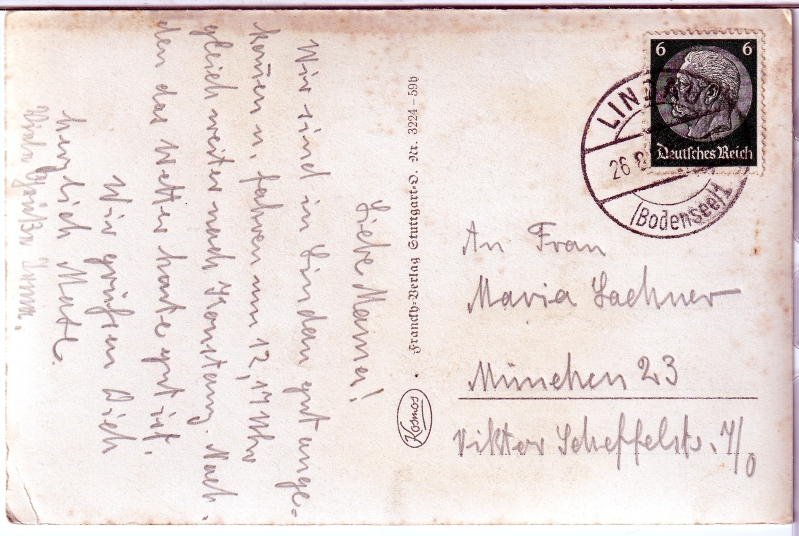 Liebe Mama!
Wir sind in Lindau gut ange-
kommen u. fahren um 12,17 Uhr
gleich weiter nach Konstanz. Nach-
den das Wetter heute gut ist.
Wir grüßen Dich
herzlich
Viele Grüße
Franckh-Verlag Stuttgart-O. Nr. 3224-59b
Kosmos
6 6
Deutsches Reich
LINDAU
26
(Bodensee)1
An Frau
Maria Lachner
München 23
Viktor Scheffelstr. 7/0